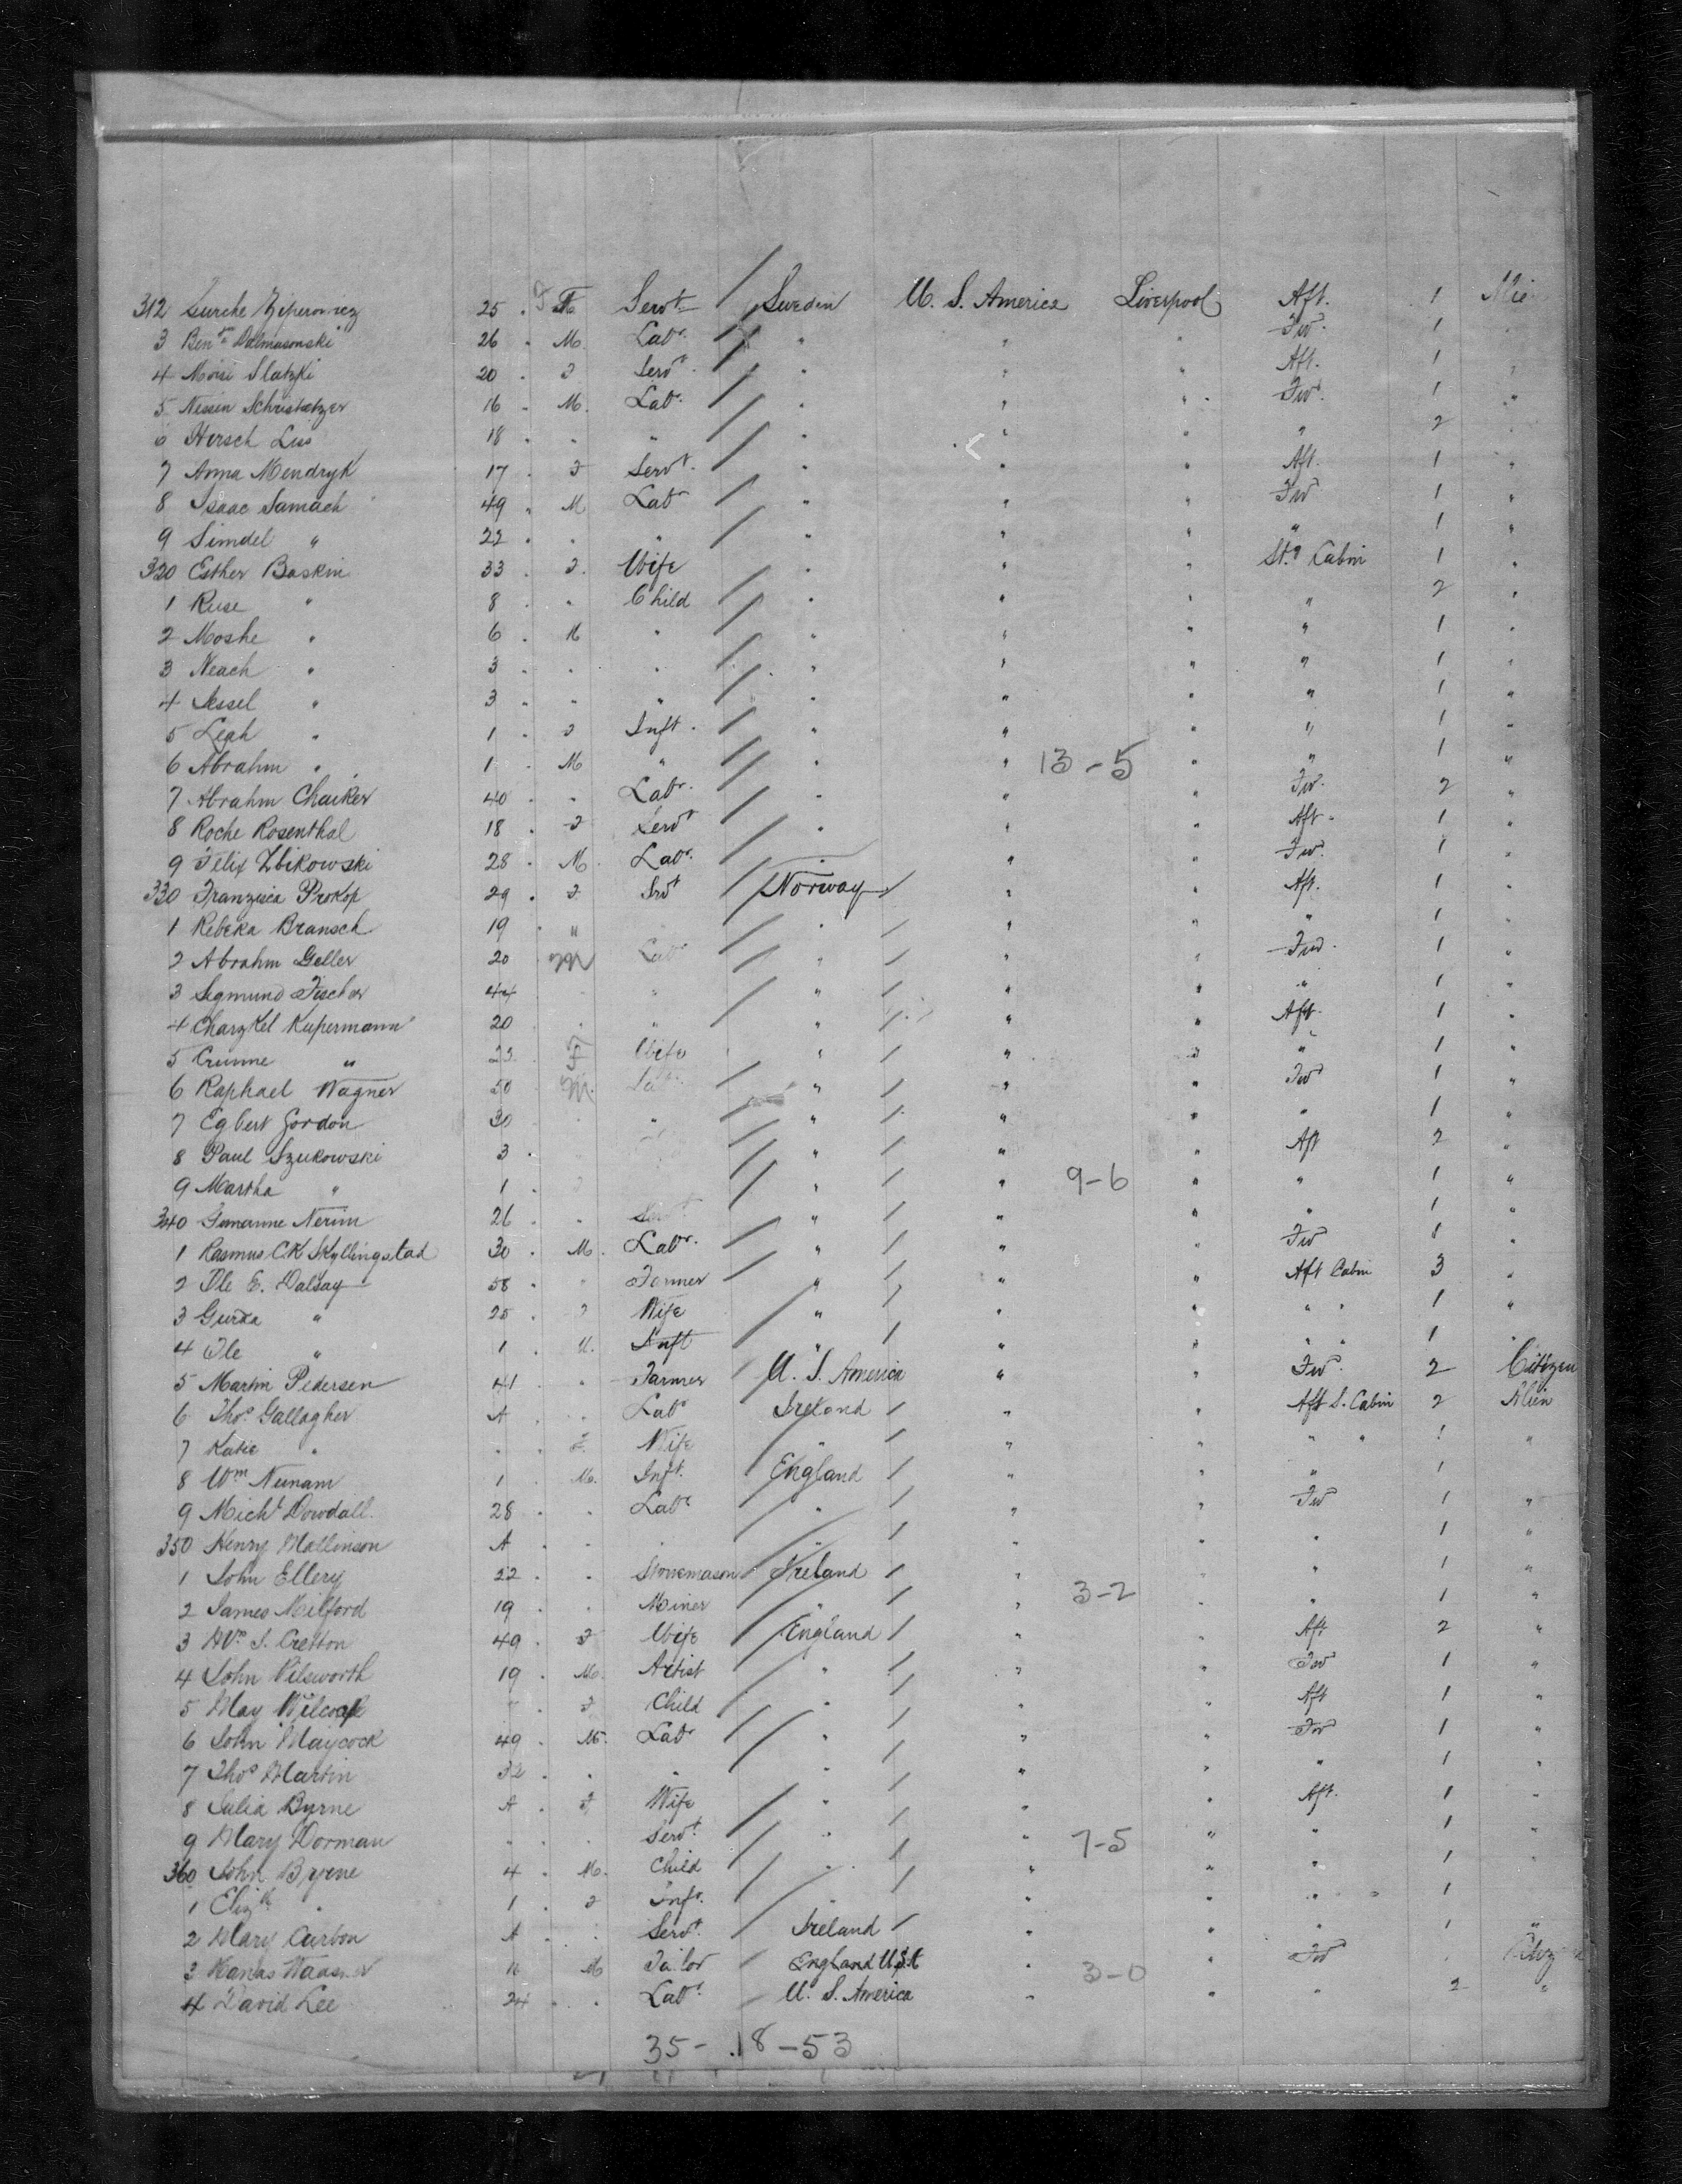 312 Surche Ziperowicz 25 . F Servt Sweden U. S. America Liverpool Aft. 1 Alien
3 Benn Dalmasonski 26 " M. Labr. " " " Fwd. 1 "
4 Moisi Slatzki 20 . F Servt. " " " Aft. 1 "
5 Nessin Schristetzer 16 " M. Labr. " " " Fwd. 1 "
6 Hersch Liss 18 " " " " " " " 2 "
7 Anna Mendryk 17 . F Servt. " " " Aft. 1 "
8 Isaac Samach 49 " M Labr " " " Fwd 1 "
9 Simdel " 22 " " " " " " " 1 "
320 Esther Baskin 33 . F. Wife " " " Stg Cabin 1 "
1 Ruse " 8 . " Child " " " " 2 "
2 Moshe " 6 . M " " " " " 1 "
3 Neach " 3 . " " " " " " 1 "
4 Jessel " 3 " " " " " " " 1 "
5 Leah " 1 " F Inft. " " " " 1 "
6 Abrahm " 1 " M " " " 13-5 " " 1 "
7 Abrahm Chaiker 40 " " Labr. " " " Fwd. 2 "
8 Roche Rosenthal 18 . F Servt " " " Aft. 1 "
9 Felix Zbikowski 28 . M. Labr. " " " Fwd. 1 "
330 Franzisca Prokop 29 . F Srvt Norway " " Aft. 1 "
1 Rebeka Bransch 19 . " " " " " 1 "
2 Abrahm Geller 20 M Labr " " " Fwd. 1 "
3 Sigmund Fischer 44 " " " " " " 1 "
4 Charzkel Kupermann 20 . " " " " " Aft. 1 "
5 " 23 F Wife " " " " 1 "
6 Raphael Wagner 50 M. Labr " " " Fwd 1 "
7 Egbert Gordon 30 " " " " " " 1 "
8 Paul Szukowski 3 . " " " Aft 2 "
9 Martha " 1 . " " 9-6 " " 1 "
340 Nerim 26 . " Servt " " " " 1 "
1 Rasmus C.K Skyllingstad 30 . M. Labr. " " " Fwd 1 "
2 Ole E. Dalsay 58 " " Farmer " " " Aft Cabin 3 "
3 Gurta " 25 . F Wife " " " " " 1 "
4 Ole " 1 . M. Inft " " " " " 1 "
5 Martin Pedersen 41 . " Farmer U. S. America " " Fwd. 2 Citizen
6 Thos Gallagher A . " Labr Ireland " " Aft S. Cabin 2 Alien
7 Katie " " . F. Wife " " " " " 1 "
8 Wm Nunam 1 . M. Inft. England " " " 1
9 Michl Dowdall. 28 . " Labr " " " Fwd 1 "
350 Henry Mallinson A . " " " " " " 1 "
1 John Ellery 22 . " Stonemason Ireland " " " 1 "
2 James Milford 19 . " Miner " " 3-2 " " 1 "
3 S. Cretton 49 . F Wife England " " Aft 2 "
4 John Pilsworth 19 . M. Artist " " " Fwd 1 "
5 May Wilcock " . F Child " " " Aft 1 "
6 John Maycock 49 . M. Labr " " " Fwd 1 "
7 Thos Martin 32 . " " " " " " 1 "
8 Julia Byrne A . F Wife " " " Aft. 1 "
9 Mary Dorman " . " Servt. " " 7-5 " " 1 "
360 John Byrne 4 . M. Child " " " " 1 "
1 Elizth " 1 . F Inft. " " " " 1
2 Mary Carbon A . " Servt. Ireland " " " 1 "
3 " M Tailor England U.S.A " 3-0 " Fwd
4 David Lee 24 . " Labr. U. S. America " " " 2 "
35- 18-53